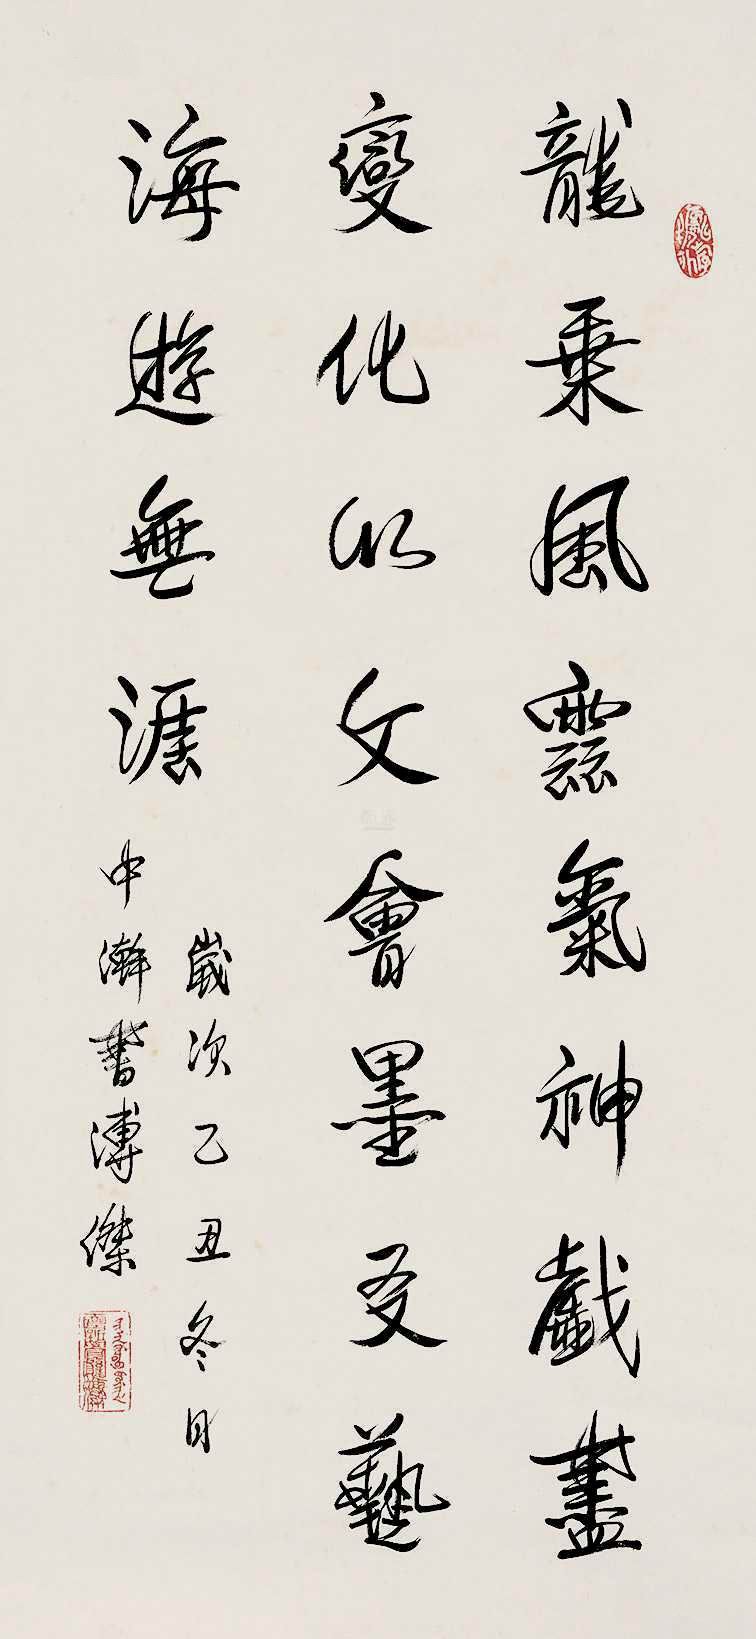 龍乘風雲氣神戲盡
變化以文會墨友藝
海遊無涯
歲次乙丑冬月
中澣書溥傑